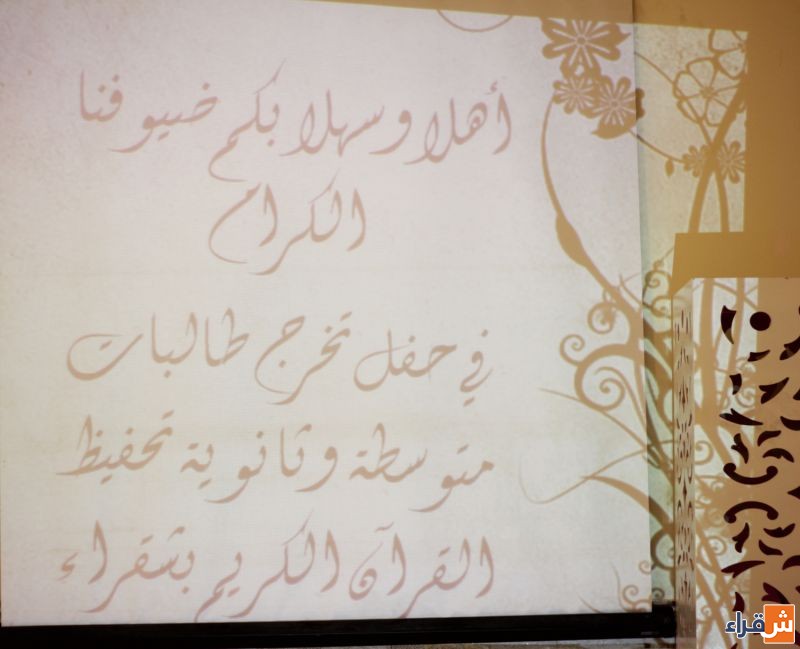 أهلا وسهلا بكم ضيوفنا
الكرام
في حفل تخرج طالبات
متوسطة وثانوية تحفيظ
القرآن الكريم بشقراء
شقراء